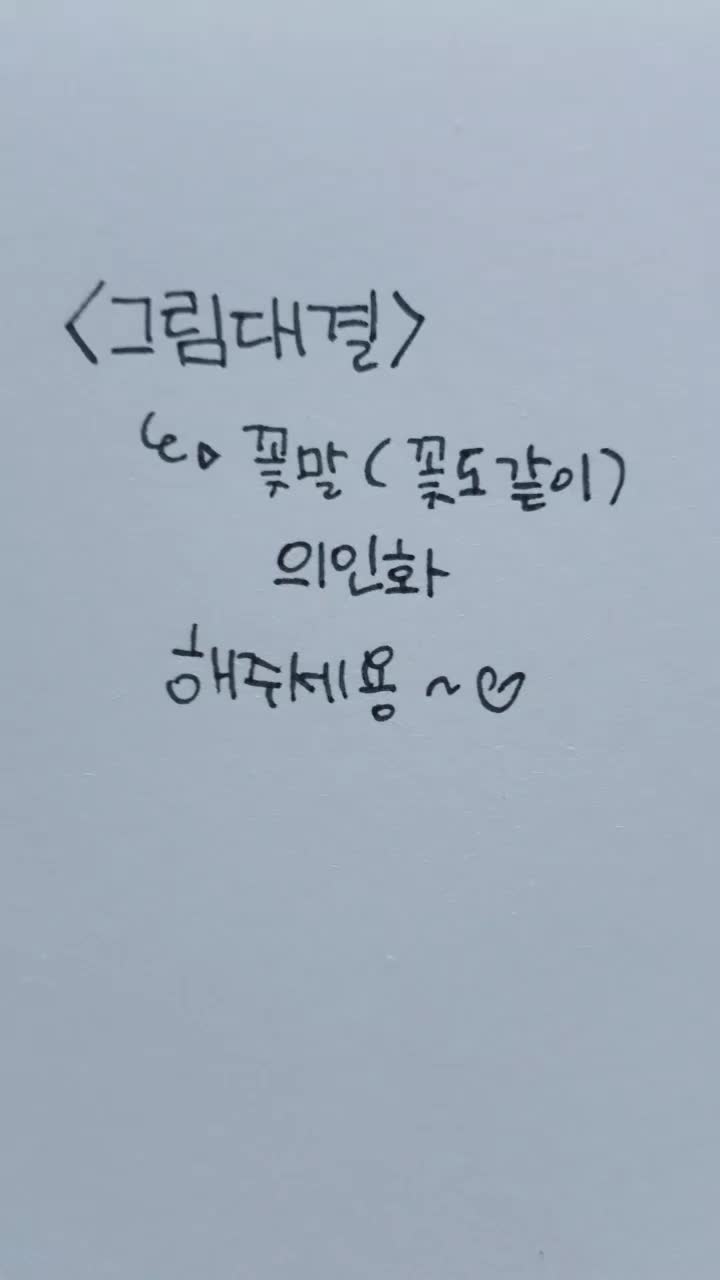 <그림대결>
꽃말(꽃도같이)
의인화
해주세용~♡